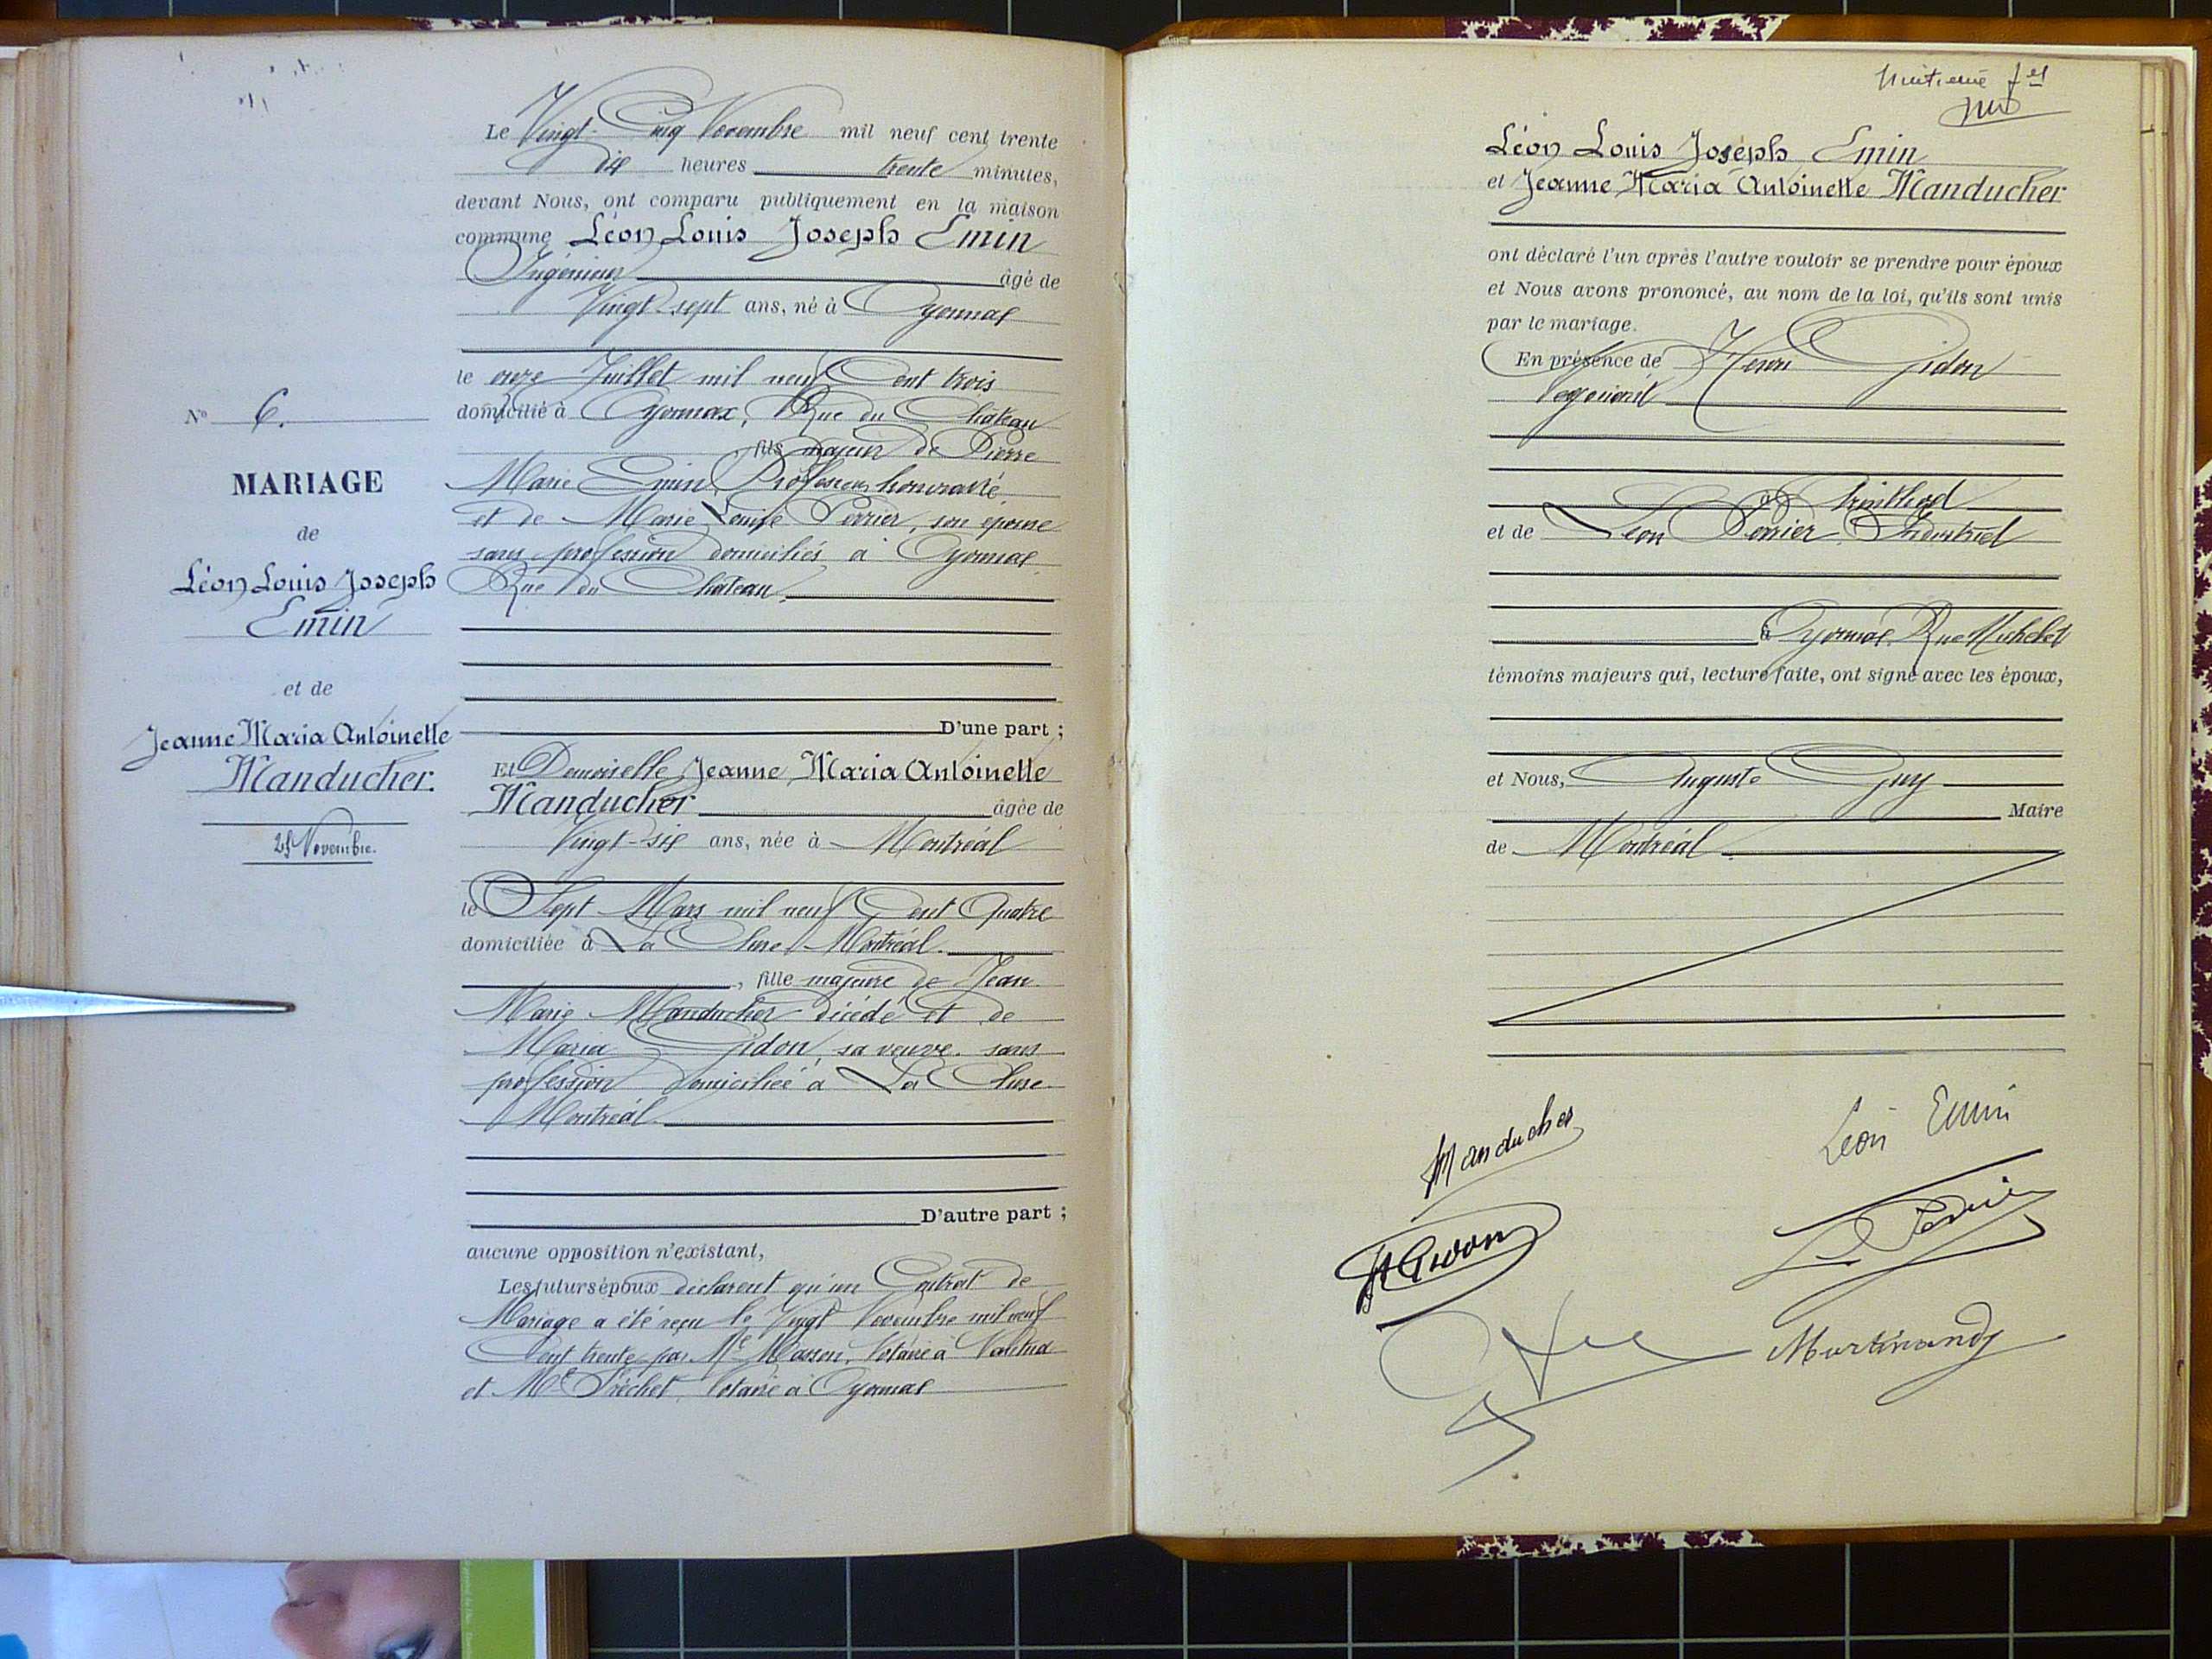 N° 6.
MARIAGE
de
Léon Louis Joseph
Emin
et de
Jeanne Maria Antoinette
Manducher.
25 Novembre.
Le Vingt-Cinq Novembre mil neuf cent trente
dix heures trente minutes,
devant Nous, ont comparu publiquement en la maison
commune Léon Louis Joseph Emin
Ingénieur âgé de
Vingt-sept ans, né à Oyonnax
le onze Juillet mil neuf Cent trois
domicilié à Oyonnax, Rue du Château
, fils majeur de Pierre
Marie Emin, Professeur honoraire,
et de Marie Louise Perrier, son épouse
sans profession domiciliés à Oyonnax
Rue du Château.
D'une part ;
Et Demoiselle Jeanne Maria Antoinette
Manducher âgée de
Vingt-six ans, née à Montréal
le Sept Mars mil neuf Cent Quatre
domiciliée à La Cluse Montréal.
, fille majeure de Jean
Marie Manducher décédé et de
Maria Gidon, sa veuve. sans
profession domiciliée à La Cluse
Montréal.
D'autre part ;
aucune opposition n'existant,
Les futurs époux déclarent qu'un Contrat de
Mariage a été reçu le Vingt Novembre mil neuf
Cent trente par Me Masson, Notaire à Nantua
et Me Fréchet, Notaire à Oyonnax
Huitième fel
Léon Louis Joseph Emin
et Jeanne Maria Antoinette Manducher
ont déclaré l'un après l'autre vouloir se prendre pour époux
et Nous avons prononcé, au nom de la loi, qu'ils sont unis
par le mariage.
En présence de Henri Gidon
Négociant
à Arinthod
et de Léon Perrier Industriel
à Oyonnax Rue Michelet
témoins majeurs qui, lecture faite, ont signé avec les époux,
et Nous, Auguste Guy
Maire
de Montréal
Manducher
Léon Emin
H Gidon
L Perrier
Martinand